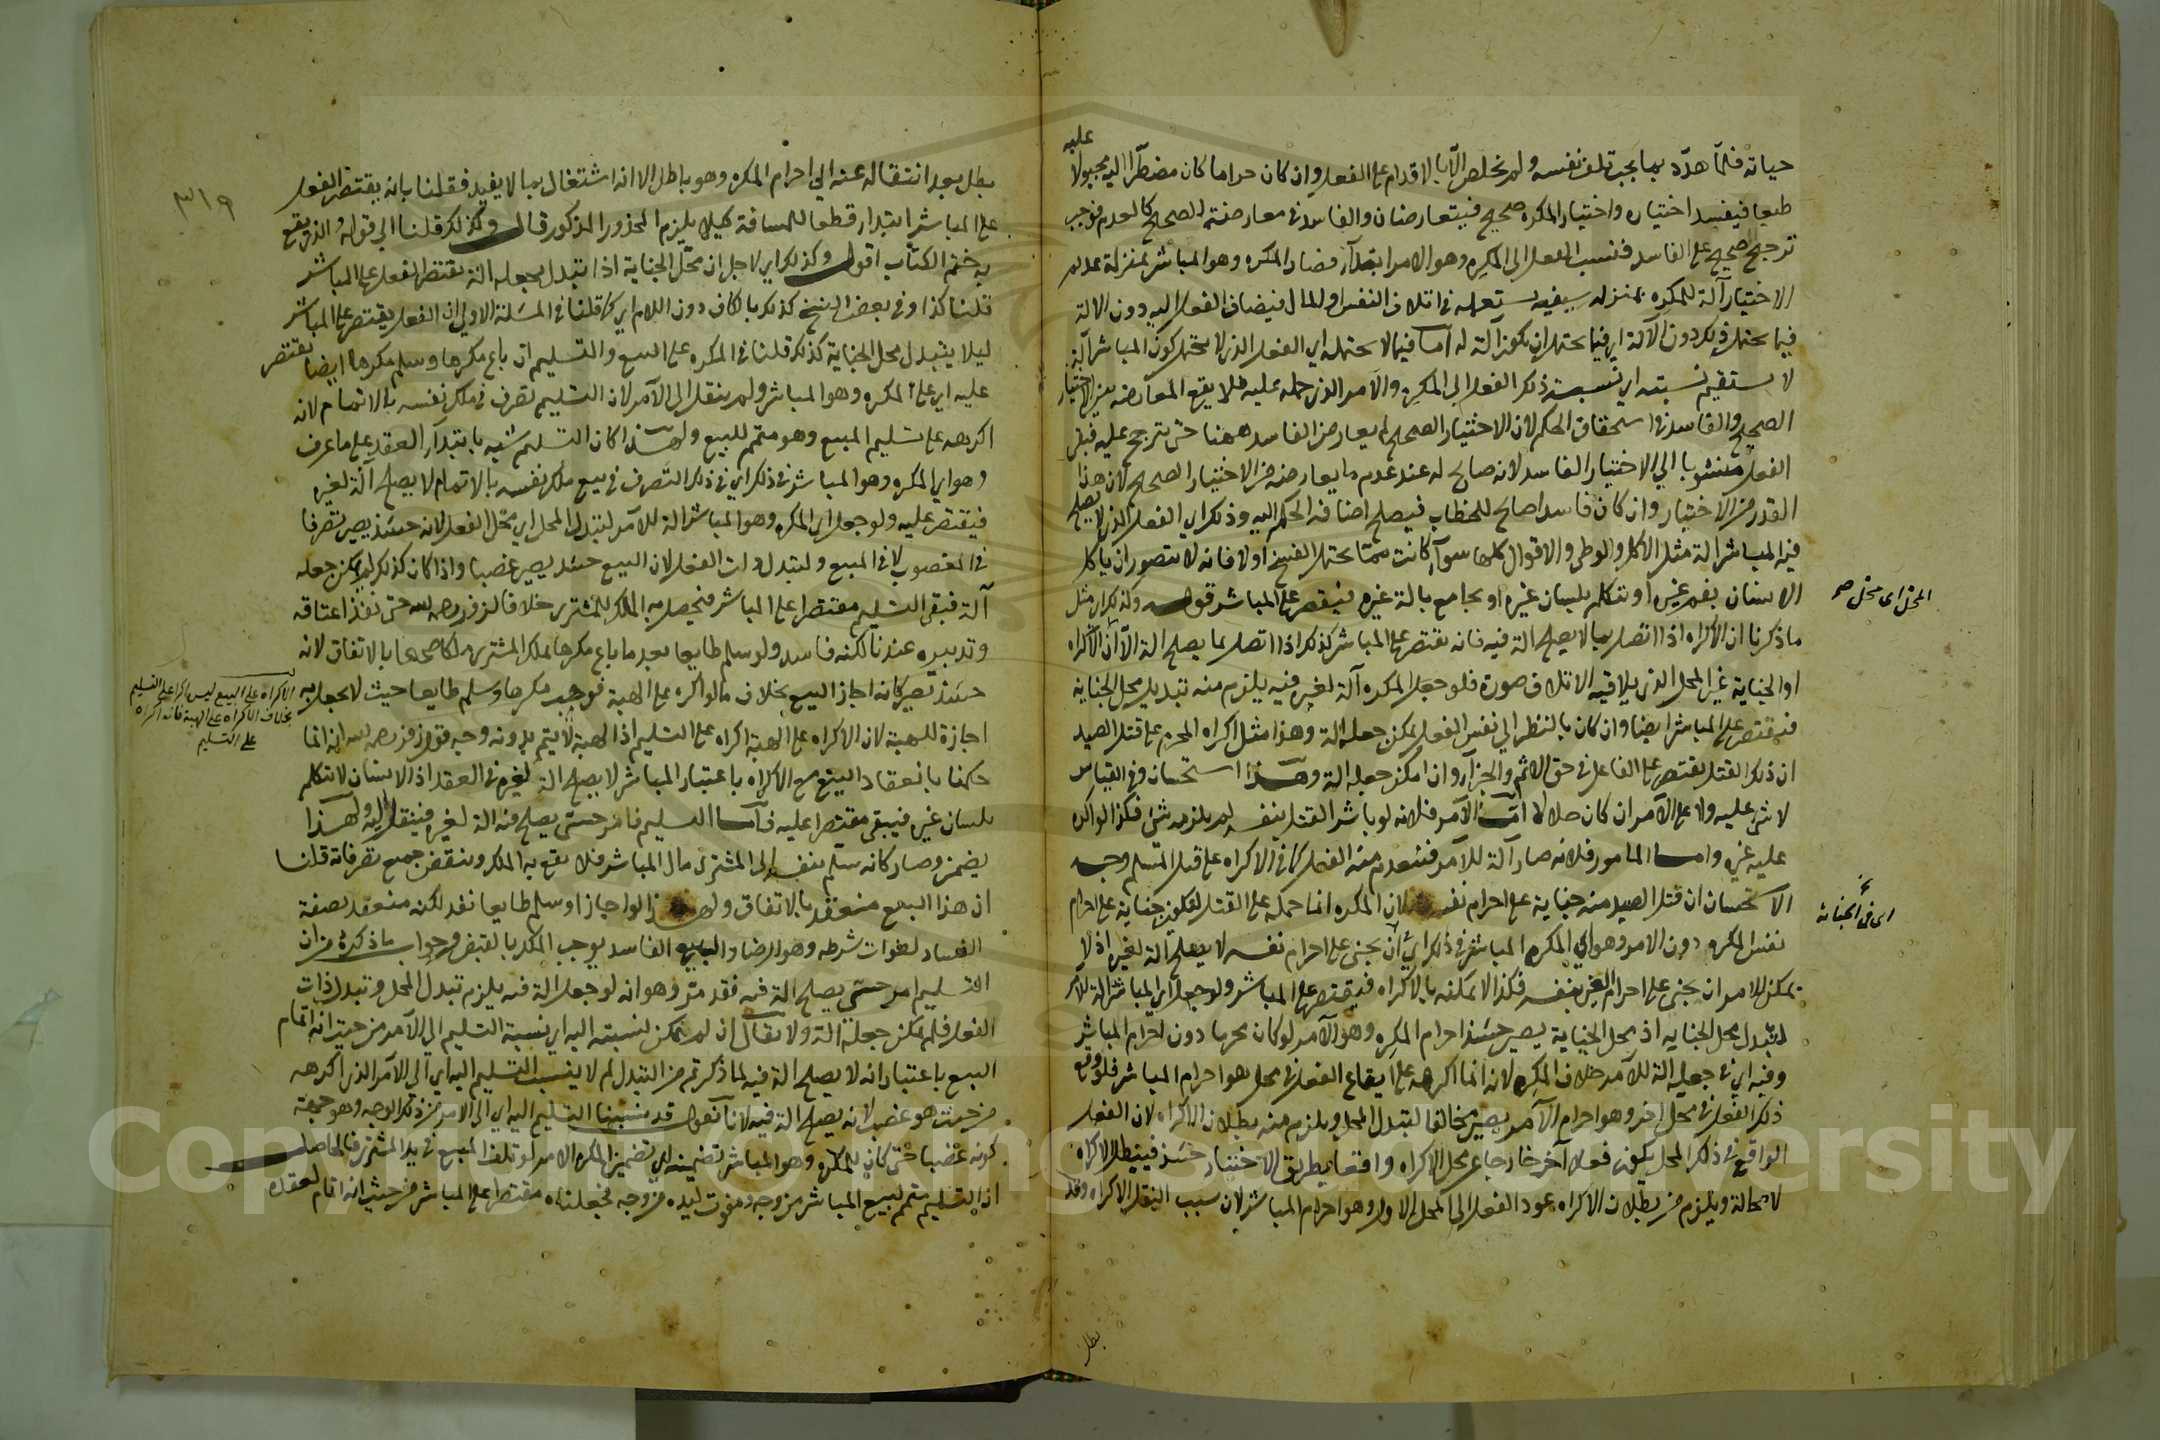 عليه
حياته فلما هدد بما يجب تلف نفسه ولم يخلص الا بالاقدام على الفعل وان كان حراما كان مضطرا اليه مجبولا
طبعا فيفسد اختياره واختيار المكره صحيح فيتعارضان والفاسد في معارضته الصحيح كالعدم فوجب
ترجيح الصحيح على الفاسد فنسب الفعل الى المكره وهو الامر ابتداء فصار المكره وهو المباشر بمنزلة عديم
الاختيار آلة للمكره بمنزلة سيفه يستعمله في اتلاف النفس والمال فيضاف الفعل اليه دون الالة
فيما يحتمل ذلك دون الآلة اي فيما يحتمل ان يكون آلة له اما فيما لا يحتمله اي الفعل الذي لا يحتمل كون المباشر آلة
لا يستقيم نسبته اي نسبة ذلك الفعل الى المكره والآمر الذي حمله عليه فلا يقع المعارضة بين الاختيار
الصحيح والفاسد في استحقاق الحكم لان الاختيار الصحيح لم يعارض الفاسد ههنا حتى يترجح عليه فبقى
الفعل منسوبا الى الاختيار الفاسد لانه صالح له عند عدم ما يعارضه من الاختيار الصحيح لان هذا
القدر من الاختيار وان كان فاسدا صالح للخطاب فيصلح اضافة الحكم اليه وذلك اي الفعل الذي لا يصلح
فيه المباشر آلة مثل الاكل والوطئ والاقوال كلها سواء كانت مما يحتمل الفسخ او لا فانه لا يتصور ان ياكل
الانسان بفم غيره او يتكلم بلسان غيره او يجامع بالة غيره فيقتصر على المباشر قوله وكذلك اي مثل
ما ذكرنا ان الاكراه اذا اتصل بما لا يصلح آلة فيه فانه يقتصر على المباشر كذلك اذا اتصل بما يصلح الة الا ان الاكراه
او الجناية غير المحل الذي يلاقيه الاتلاف صورة فلو جعل المكره آلة لغيره فيه يلزم منه تبديل محل الجناية
فيقتصر على المباشر ايضا وان كان بالنظر الى نفس الفعل يمكن جعله آلة وهذا مثل اكراه المحرم على قتل الصيد
ان ذلك القتل يقتصر على الفاعل في حق الاثم والجزاء وان امكن جعله آلة وهذا استحسان وفي القياس
لا شئ عليه ولا على الآمر ان كان حلالا اما الآمر فلانه لو باشر القتل بنفسه لم يلزمه شئ فكذا لو اكره
عليه غيره واما المامور فلانه صار آلة للآمر فينعدم منه الفعل كما في الاكراه على قتل المسلم وجه
الاستحسان ان قتل الصيد منه جناية على احرام نفسه لان المكره انما حمله على القتل ليكون جناية على احرام
نفس المكره دون الامر وهو اي المكره المباشر في ذلك اي ان يجني على احرام نفسه لا يصلح آلة لغيره اذ لا
يمكن للامر ان يجني على احرام الغير بنفسه فكذا لا يمكنه بالاكراه فيقتصر على المباشر ولو جعل اي المباشر آلة للآمر
لتبدل محل الجناية اذ محل الجناية يصير حينئذ احرام المكره وهو الآمر لو كان محرما دون احرام المباشر
وفيه اي في جعله آلة للآمر خلاف المكره لانه انما اكرهه على ايقاع الفعل في محل هو احرام المباشر فلو وقع
ذلك الفعل في محل اخر وهو احرام الآمر يصير مخالفا لتبدل المحل ويلزم منه بطلان الاكراه لان الفعل
الواقع في ذلك المحل يكون فعلا آخر خارجا عن محل الاكراه واقعا بطريق الاختيار حينئذ فيبطل الاكراه
لا محالة ويلزم من بطلان الاكراه عود الفعل الى المحل الاول وهو احرام المباشر لان سبب النقل الاكراه وقد
بطل
المحل اي محل
اي في الجناية
٣١٩
بطل بعد انتقاله عنه الى احرام المكره وهو باطل الا انه اشتغال بما لا يفيد فقلنا بانه يقتصر الفعل
على المباشر ابتداء قطعا للمسافة كيلا يلزم المحذور المذكور قال وكذلك قلنا الى قوله والذي يقع
به ختم الكتاب اقول وكذلك اي لاجل ان محل الجناية اذا تبدل بجعله آلة يقتصر الفعل على المباشر
قلنا كذا وفي بعض النسخ كذلك بالكاف دون اللام اي كما قلنا في المسئلة الاولى ان الفعل يقتصر على المباشر
ليلا يتبدل محل الجناية كذلك قلنا في المكره على البيع والتسليم ان باع مكرها وسلم مكرها ايضا يقتصر
عليه اي على المكره وهو المباشر ولم ينقل الى الآمر لان التسليم تصرف في ملك نفسه بالاتمام لانه
اكرهه على تسليم المبيع وهو متمم للبيع ولهذا كان التسليم شبه بابتداء العقد على ما عرف
وهو اي المكره وهو المباشر في ذلك اي في ذلك التصرف في بيع ملك نفسه بالاتمام لا يصلح آلة لغيره
فيقتصر عليه ولو جعل اي المكره وهو المباشر آلة للآمر لتبدل المحل اي محل الفعل لانه حينئذ يصير تصرفا
في المغصوب لا في المبيع ولتبدل ذات الفعل لان البيع حينئذ يصير غصبا واذا كان كذلك لم يمكن جعله
آلة فبقى التسليم مقتصرا على المباشر فيحصل به الملك للمشتري خلافا لزفر رحمه الله حتى نفذ اعتاقه
وتدبيره عندنا لكنه فاسد ولو سلم طايعا بعد ما باع مكرها يملك المشتري ملكا صحيحا بالاتفاق لانه
حينئذ يصير كانه اجاز البيع بخلاف ما لو اكره على الهبة فوهب مكرها وسلم طايعا حيث لا يجعل به
اجازة للهبة لان الاكراه على الهبة اكراه على التسليم اذ الهبة لا يتم بدونه وجه قول زفر رحمه الله انه انما
حكمنا بانعقاد البيع مع الاكراه باعتبار المباشر لا يصلح آلة لغيره في العقد اذ الانسان لا يتكلم
بلسان غيره فيبقى مقتصرا عليه فاما التسليم فامر حسي يصلح فيه آلة لغيره فينتقل اليه ولهذا
يضمن وصار كانه سلم بنفسه الى المشتري مال المباشر فلا يقع به الملك وينقض جميع تصرفاته قلنا
ان هذا البيع منعقد بالاتفاق ولهذا لو اجاز او سلم طايعا نفذ لكن منعقد بصفة
الفساد لفوات شرطه وهو الرضا والبيع الفاسد يوجب الملك بالقبض وجواب ما ذكره من ان
التسليم امر حسي يصلح آلة فيه فقد مر وهو انه لو جعل آلة فيه يلزم تبدل المحل وتبدل ذات
الفعل فلم يمكن جعله آلة ولا يقال ان لم يمكن نسبته اليه اي نسبة التسليم الى الآمر من حيث انه اتمام
البيع باعتبار انه لا يصلح آلة فيه لما ذكرتم من التبدل لم لا ينسب التسليم اليه اي الى الآمر الذي اكرهه
من حيث هو غصب لانه يصلح آلة فيه لانا نقول قد نسبنا التسليم اليه اي الى الآمر من ذلك الوجه وهو جهة
كونه غصبا حتى كان للمكره وهو المباشر تضمينه اي تضمين المكره الامر لو تلف المبيع في يد المشتري فالحاصل
ان التسليم متمم لبيع المباشر من وجه ومفوت ليده من وجه فجعلناه مقتصرا على المباشر من حيث انه اتمام لعقده
الاكراه على البيع ليس اكراه على التسليم
بخلاف الاكراه على الهبة فانه اكراه
على التسليم